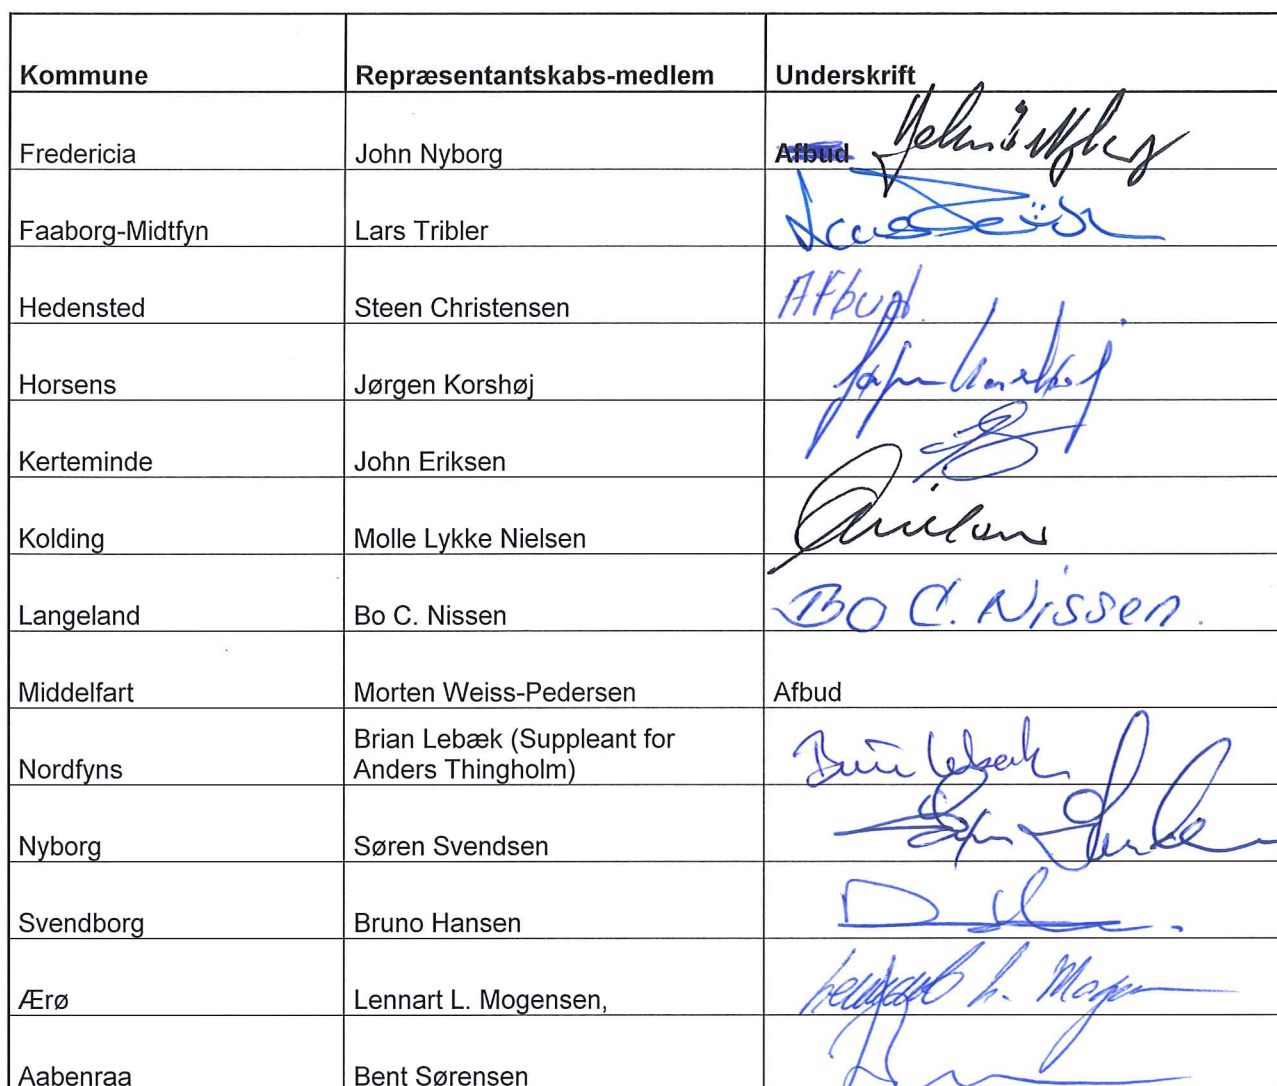 Kommune Repræsentantskabs-medlem Underskrift
Fredericia John Nyborg Afbud
Faaborg-Midtfyn Lars Tribler
Hedensted Steen Christensen Afbud.
Horsens Jørgen Korshøj
Kerteminde John Eriksen
Kolding Molle Lykke Nielsen
Langeland Bo C. Nissen Bo C. Nissen.
Middelfart Morten Weiss-Pedersen Afbud
Brian Lebæk (Suppleant for
Nordfyns Anders Thingholm)
Nyborg Søren Svendsen
Svendborg Bruno Hansen
Ærø Lennart L. Mogensen,
Aabenraa Bent Sørensen